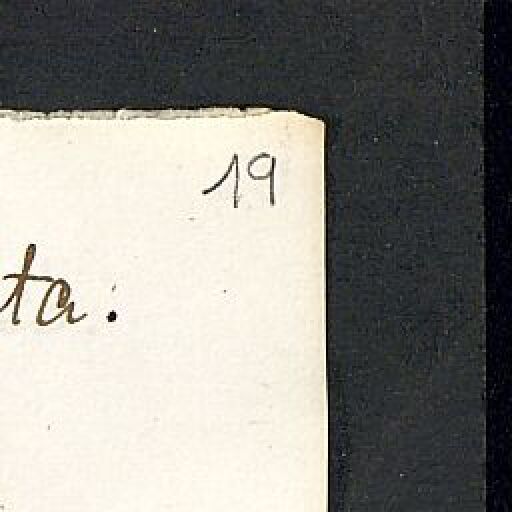 19
ta.